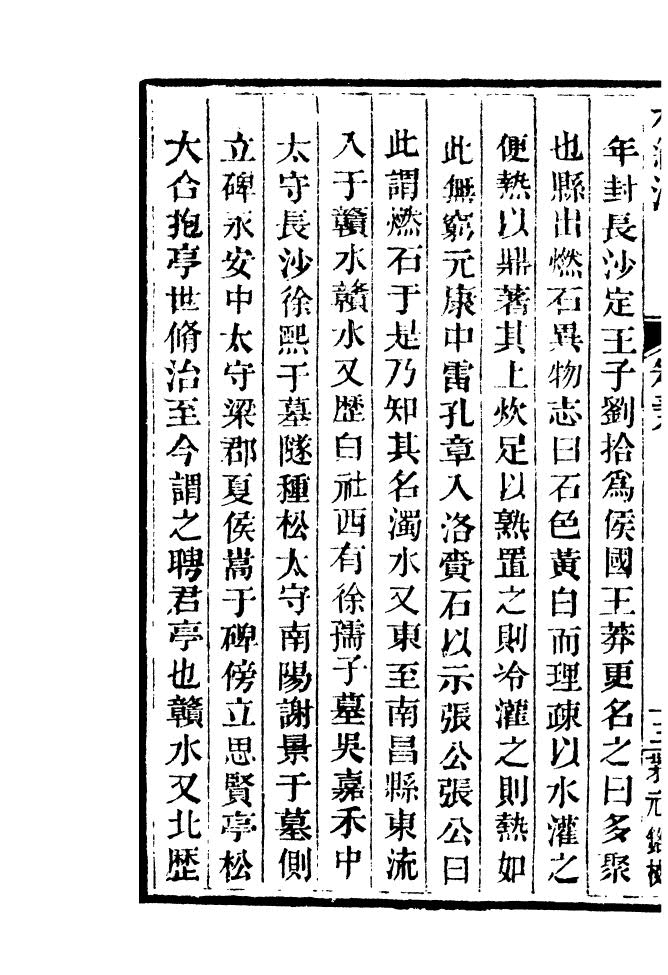 年封長沙定王子劉拾爲侯國王莽更名之曰多聚
也縣出燃石異物志曰石色黃白而理疎以水灌之
便熱以鼎著其上炊足以熟置之則冷灌之則熱如
此無窮元康中雷孔章入洛賫石以示張公張公曰
此謂燃石于是乃知其名濁水又東至南昌縣東流
入于贛水贛水又歷白社西有徐孺子墓吳嘉禾中
太守長沙徐熙于墓隧種松太守南陽謝景于墓側
立碑永安中太守梁郡夏侯嵩于碑傍立思賢亭松
大合抱亭世脩治至今謂之聘君亭也贛水又北歷